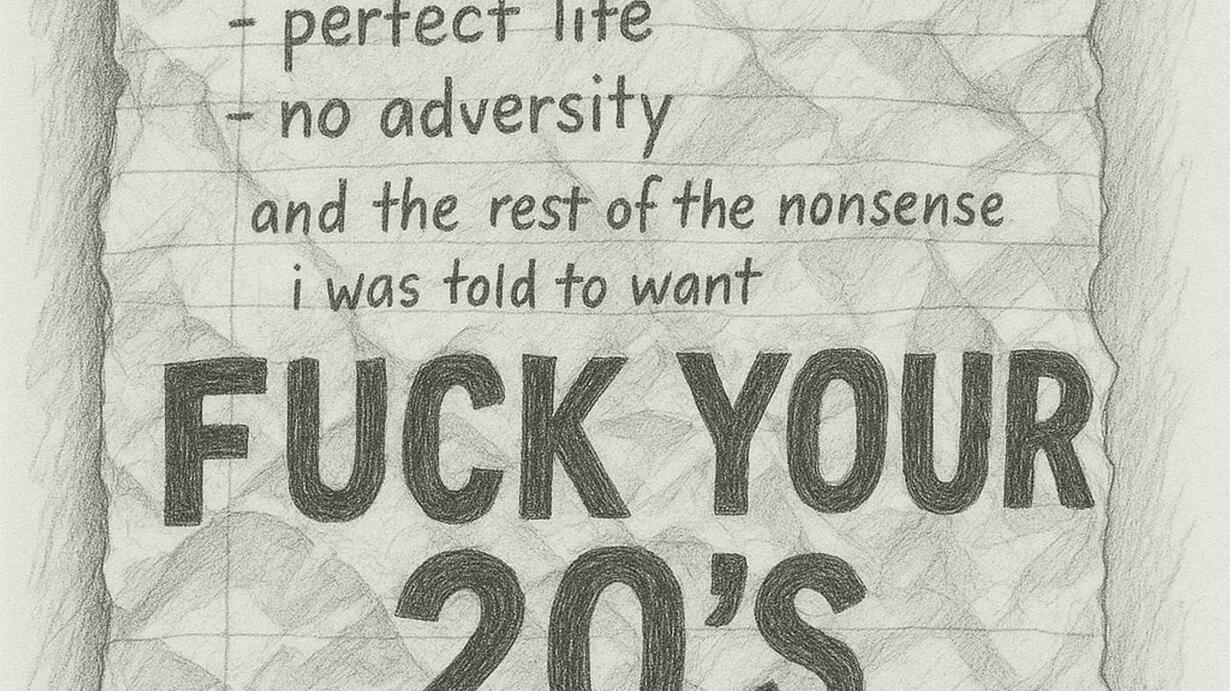 - perfect life
- no adversity
and the rest of the nonsense
i was told to want
FUCK YOUR
20'S